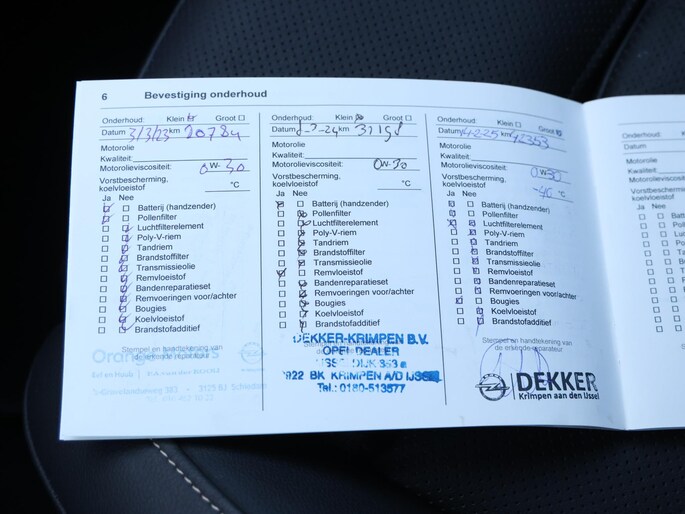 6 Bevestiging onderhoud
Onderhoud: Klein Groot
Datum 3/3/23 km 20784
Motorolie
Kwaliteit:
Motorolieviscositeit: 0 W- 30
Vorstbescherming,
koelvloeistof °C
Ja Nee
Batterij (handzender)
Pollenfilter
Luchtfilterelement
Poly-V-riem
Tandriem
Brandstoffilter
Transmissieolie
Remvloeistof
Bandenreparatieset
Remvoeringen voor/achter
Bougies
Koelvloeistof
Brandstofadditief
Stempel en handtekening van
de erkende reparateur
Onderhoud: Klein Groot
Datum -24 km
Motorolie
Kwaliteit:
Motorolieviscositeit: 0 W- 30
Vorstbescherming,
koelvloeistof °C
Ja Nee
Batterij (handzender)
Pollenfilter
Luchtfilterelement
Poly-V-riem
Tandriem
Brandstoffilter
Transmissieolie
Remvloeistof
Bandenreparatieset
Remvoeringen voor/achter
Bougies
Koelvloeistof
Brandstofadditief
DEKKER-KRIMPEN B.V.
OPEL DEALER
DIJK 363
2922 BK KRIMPEN A/D IJSSEL
Tel.: 0180-513577
Onderhoud: Klein Groot
Datum 4-2-25 km 42353
Motorolie
Kwaliteit:
Motorolieviscositeit: 0 W- 30
Vorstbescherming,
koelvloeistof °C
Ja Nee
Batterij (handzender)
Pollenfilter
Luchtfilterelement
Poly-V-riem
Tandriem
Brandstoffilter
Transmissieolie
Remvloeistof
Bandenreparatieset
Remvoeringen voor/achter
Bougies
Koelvloeistof
Brandstofadditief
Stempel en handtekening van
de erkende reparateur
DEKKER
Krimpen aan den IJssel
Onderhoud:
Datum
Motorolie
Kwaliteit:
Motorolieviscosite
Vorstbescherming
koelvloeistof
Ja Nee